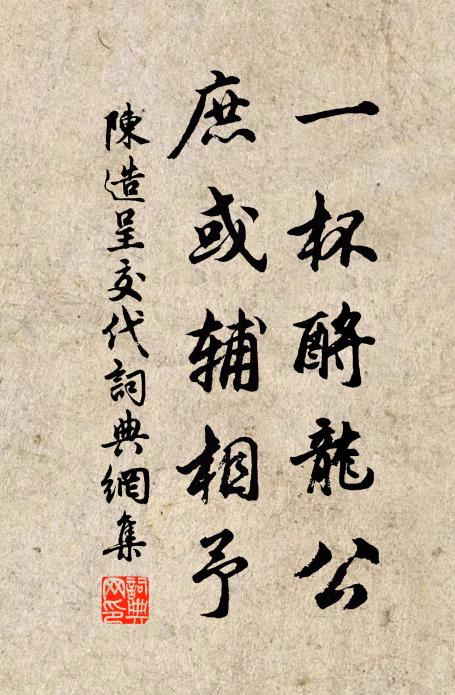 一杯酹龍公
庶或輔相予
陳造呈交代詞典網集
詞典網印